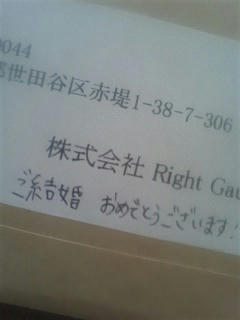 0044
都世田谷区赤堤1-38-7-306
株式会社 Right Gau
ご結婚 おめでとうございます!